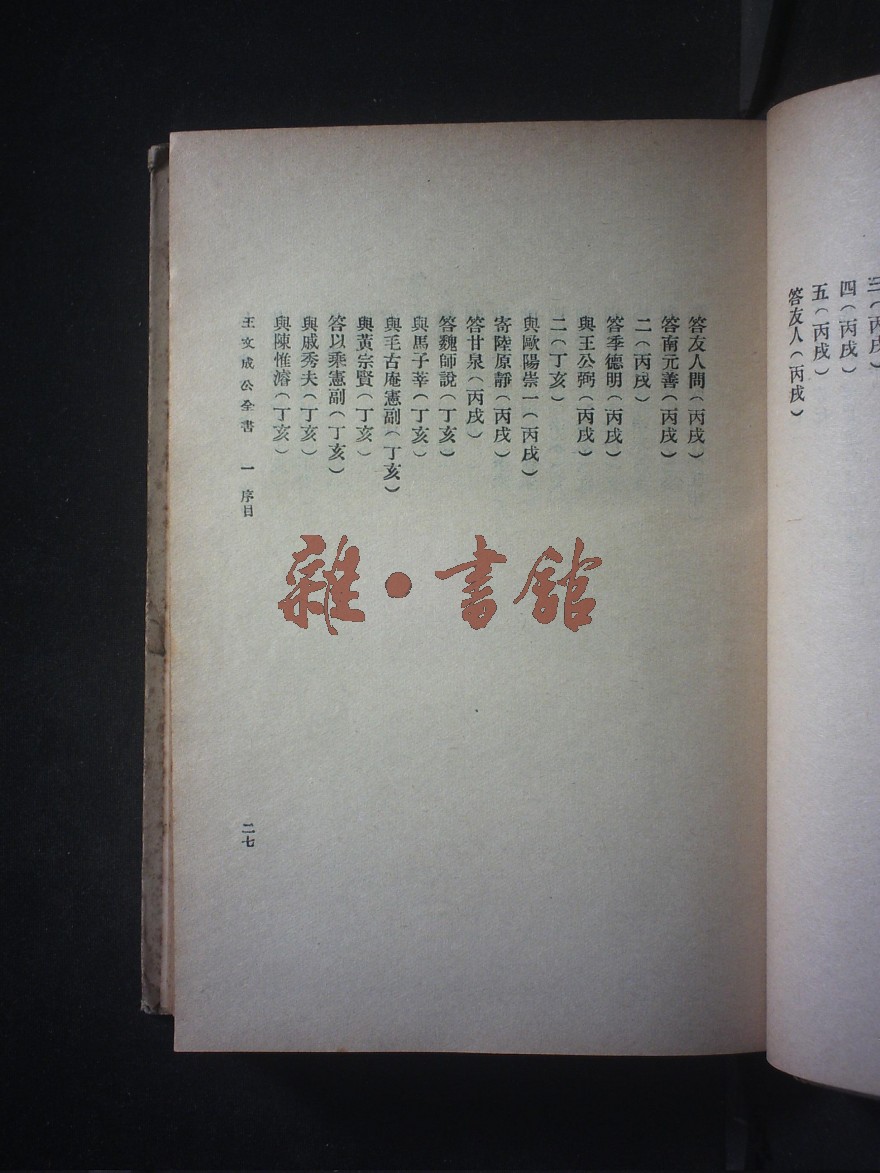 三(丙戌)
四(丙戌)
五(丙戌)
答友人(丙戌)
答友人問(丙戌)
答南元善(丙戌)
二(丙戌)
答季德明(丙戌)
與王公弼(丙戌)
二(丁亥)
與歐陽崇一(丙戌)
寄陸原靜(丙戌)
答甘泉(丙戌)
答魏師說(丁亥)
與馬子莘(丁亥)
與毛古庵憲副(丁亥)
與黃宗賢(丁亥)
答以乘憲副(丁亥)
與戚秀夫(丁亥)
與陳惟濬(丁亥)
王文成公全書 一 序目
二七
雜·書館